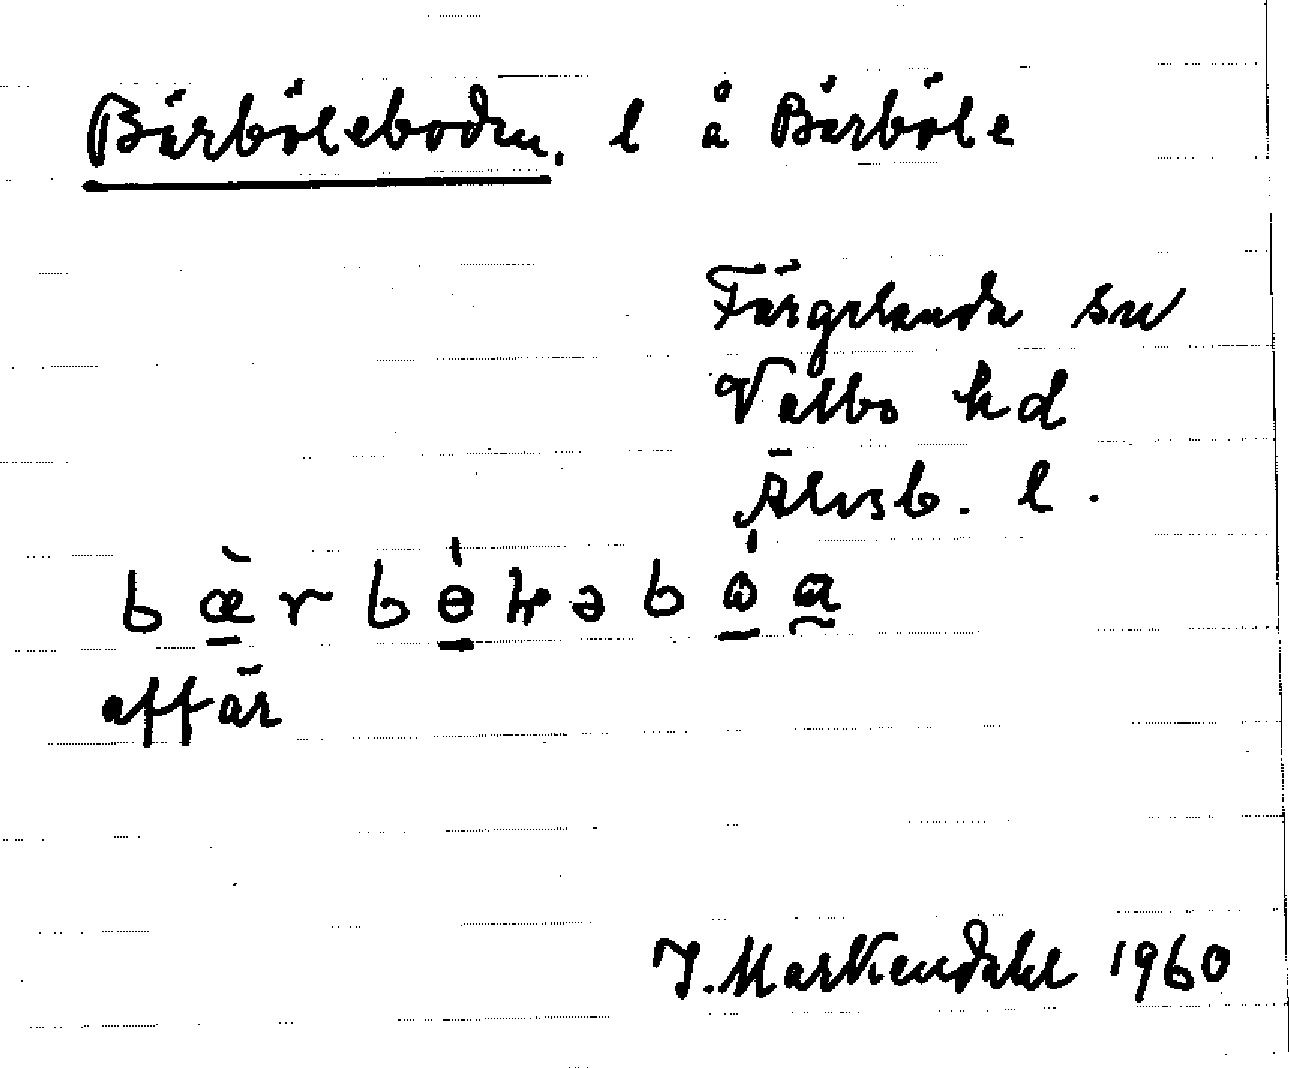 Bärböleboden. l å Bärböle
Färgelanda sn
Valbo hd
Älvsb. l.
affär
I. Markendahl 1960